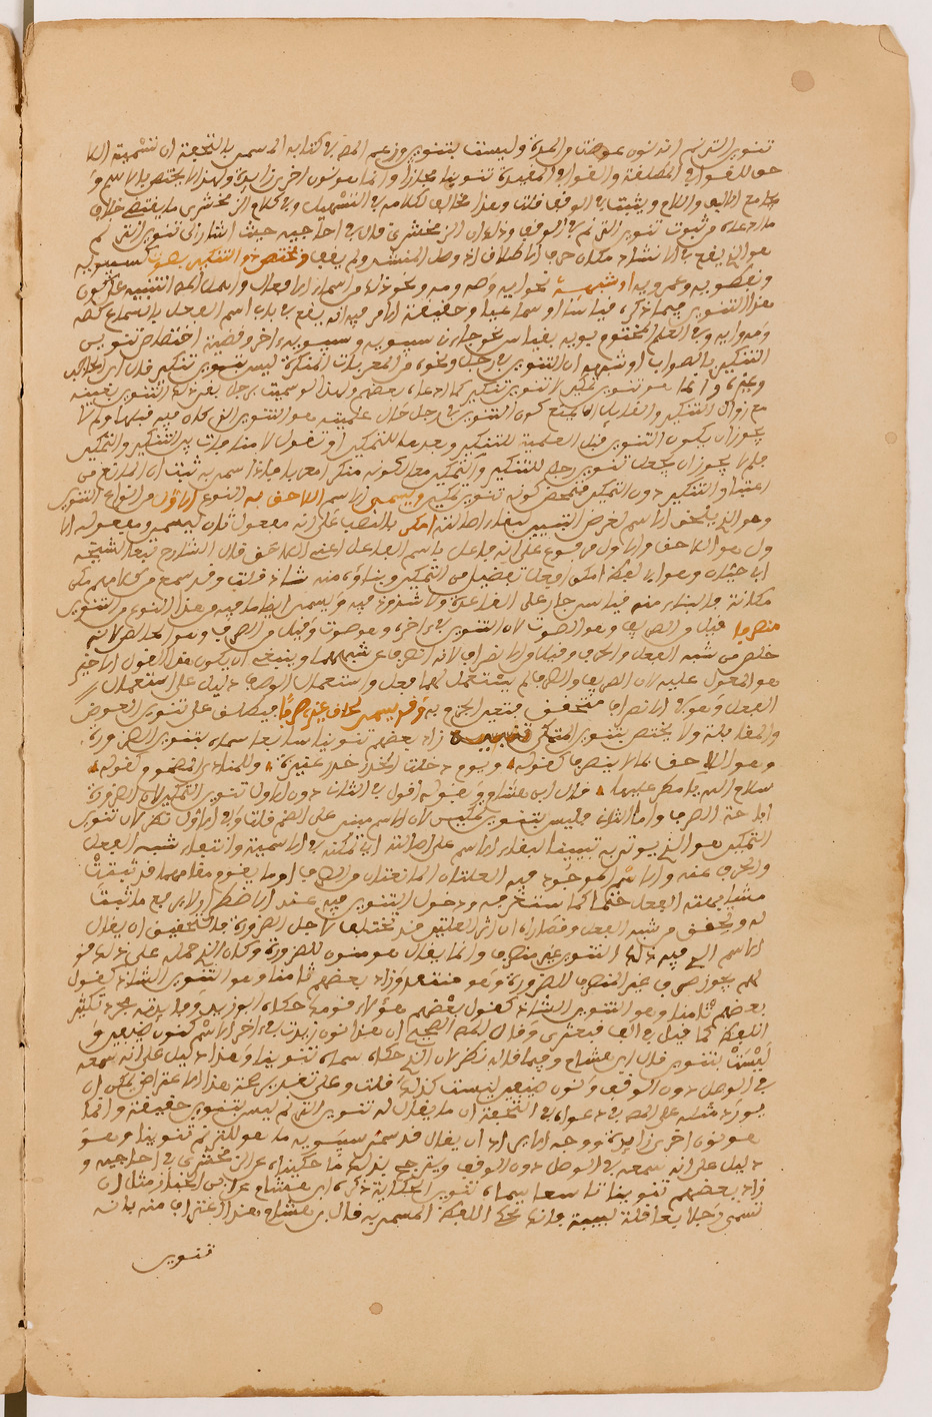 تنوين الترنم انه نون عوضت من المدة وليست بتنوين وزعم المص في كتابه المسمى بالتحفة ان تسمية اللا
حق للقوافي المطلقة والقوافي المقيدة تنوينا مجاز وانما هو نون اخرى زائدة ولهذا لا يختص بالاسم و
يجامع الالف واللام ويثبت في الوقف قلت وهذا مخالف لكلامه في التسهيل وفي كلام الزمخشري ما يقتضي خلاف
ما ادعاه من ثبوت تنوين الترنم في الوقف وذلك ان الزمخشري قال في احاجيه حيث اشار الى تنوين الترنم
هو الذي يقع في الانشاد مكان حرف الاطلاق اذا وصل المنشد ولم يقف ويختص ذو التنكير بصوت كسيبويه
ونفطويه وعمرويه او شبهه نحو ايه وصه ومه ونحو ذلك من اسماء الافعال واهمل المص التنبيه على كون
هذا التنوين فيما ذكره قياسيا او سماعيا وحقيقة الامر فيه انه يقع في باب اسم الفعل بالسماع كصه
ومه وايه وفي العلم المختوم بويه بقياس نحو جاءني سيبويه وسيبويه ءاخر وقضية اختصاص تنوين
التنكير بالصوت او شبهه ان التنوين في رجل ونحوه من المعربات المنكرة ليس بتنوين تنكير قال ابن الحاجب
وغيره وانما هو تنوين تمكين لا تنوين تنكير كما ادعاه بعضهم ولهذا لو سميت برجل بقي ذلك التنوين بعينه
مع زوال التنكير
يجوز ان يكون التنوين قبل العلمية للتنكير وبعدها للتمكين او تقول لا منافاة بين التنكير والتمكين
فلم لا يجوز ان يجعل تنوين رجل للتنكير والتمكين معا لكونه منكرا
اعتبار التنكير دون التمكن فتمحض كونه تنوين تمكين ويسمى الاسم اللاحق به النوع الاول من انواع التنوين
وهو الذي يلحق الاسم لغرض التبيين لبقاء اصالته امكن بالنصب على انه مفعول ثان ليسمى ومفعوله الا
ول هو اللاحق والاول مرفوع على انه فاعل باسم الفاعل اعني اللاحق قال الشارح تبعا لشيخه
ابي حيان وهو اي لفظ امكن افعل تفضيل من التمكين وبناؤه منه شاذ قلت وقد سمع من كلامهم مكن
مكانة فالبناء منه قياس جار على القاعدة ولا شذوذ فيه ويسمى ايضا ما فيه هذا النوع من التنوين
منصرفا قيل من الصريف وهو الصوت لان التنوين في ءاخره وهو صوت وقيل من الصرف وهو الخالص لانه
خلص من شبه الفعل والحرف وقيل من الانصراف لانه انصرف عن شبههما وينبغي ان يكون هذا القول الاخير
هو المعول عليه لان الصريف والصرف لم يستعمل لهما فعل واستعمال الوصف دليل على استعمال
الفعل وهو في الانصراف متحقق فتعين الجزم به وقد يسمى لحاق غيره صرفا فيطلق على تنوين العوض
والمقابلة ولا يختص بتنوين التمكين زاد بعضهم تنوينا سابعا سماه بتنوين الضرورة
وهو اللاحق لما لا ينصرف كقوله ويوم دخلت الخدر خدر عنيزة وللمنادى المضموم كقوله
سلام الله يا مطر عليها قال ابن هشام وبقوله اقول في الثاني دون الاول تنوين التمكين لان الضرورة
اباحت الصرف واما الثاني فليس بتنوين تمكين لان الاسم مبني على الضم قلت وفي الاول نظر لان تنوين
التمكين هو الذي يوتى به تبيينا لبقاء الاسم على اصالته اي تمكنه في الاسمية وانتفاء شبه الفعل
والحرف عنه والاسم الموجود فيه العلتان المانعتان من الصرف او ما يقوم مقامهما قد ثبتت
مشابهته الفعل
له وتحقق من شبه الفعل وقصاراه ان اثر العلتين قد تخلف لاجل الضرورة فالتحقيق ان يقال
الاسم الذي فيه ذلك التنوين غير منصرف وانما يقال هو منون للضرورة وكان الذي حمله على ذلك قو
لهم يجوز صرف غير المنصرف للضرورة وهو منتقد وزاد بعضهم ثامنا وهو التنوين الشاذ كقول
بعضهم ثامنا وهو التنوين الشاذ كقول بعضهم هؤلاء قومك حكاه ابو زيد وفائدته مجرد تكثير
اللفظ كما قيل في الف قبعثرى وقال المص الصحيح ان هذا نون زيدت في ءاخر الاسم كنون ضيفن و
ليست بتنوين قال ابن هشام وفيما قاله نظر لان الذي حكاه سماه تنوينا وهذا دليل على انه سمعه
في الوصل دون الوقف ونون ضيفن ليست كذلك قلت وعلى تقدير صحة هذا الاعتراض يمكن ان
يورد مثله على المص في دعواه في التحفة ان ما يقال له تنوين الترنم ليس بتنوين حقيقة وانما
هو نون اخرى زائدة ووجه الايراد ان يقال قد سمى سيبويه ما هو للترنم تنوينا وهو
دليل على انه سمعه في الوصل دون الوقف ويترجح بذلك ما حكيناه عن الزمخشري في احاجيه و
زاد بعضهم تنوينا تاسعا سماه تنوين الحكاية ذكره ابن هشام عن ابن الخباز مثل ان
تسمى رجلا بعاقلة لبيبة فانك تحكي اللفظ المسمى به قال ابن هشام وهذا اعتراف منه بانه
تنوين